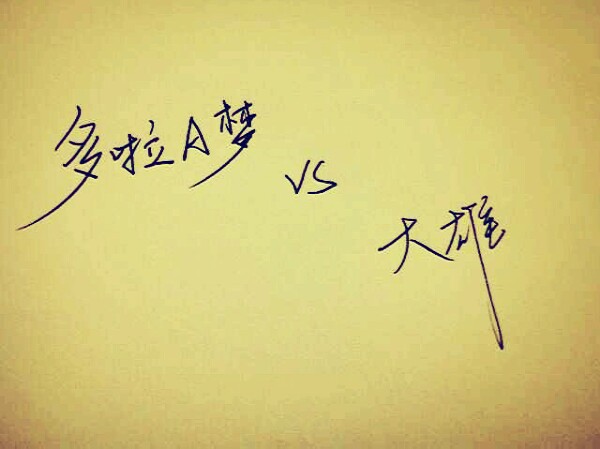 多啦A梦
vs
大雄